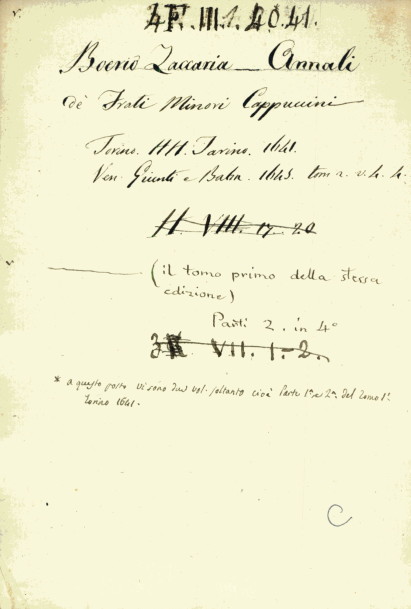 4F. III. 1. 40. 41.
Boerio Zaccaria — Annali
de' Frati Minori Cappuccini
Torino. HH. Tarino. 1641.
Ven. Giunti e Baba. 1643. tom 2. v. 4. 4.
H VIII. 17. 20
(il tomo primo della stessa
edizione)
Parti 2. in 4°
VII. 1-2.
* a questo posto vi sono due vol. soltanto cioè Parte 1ª e 2ª del Tomo 1°
Torino 1641.
C